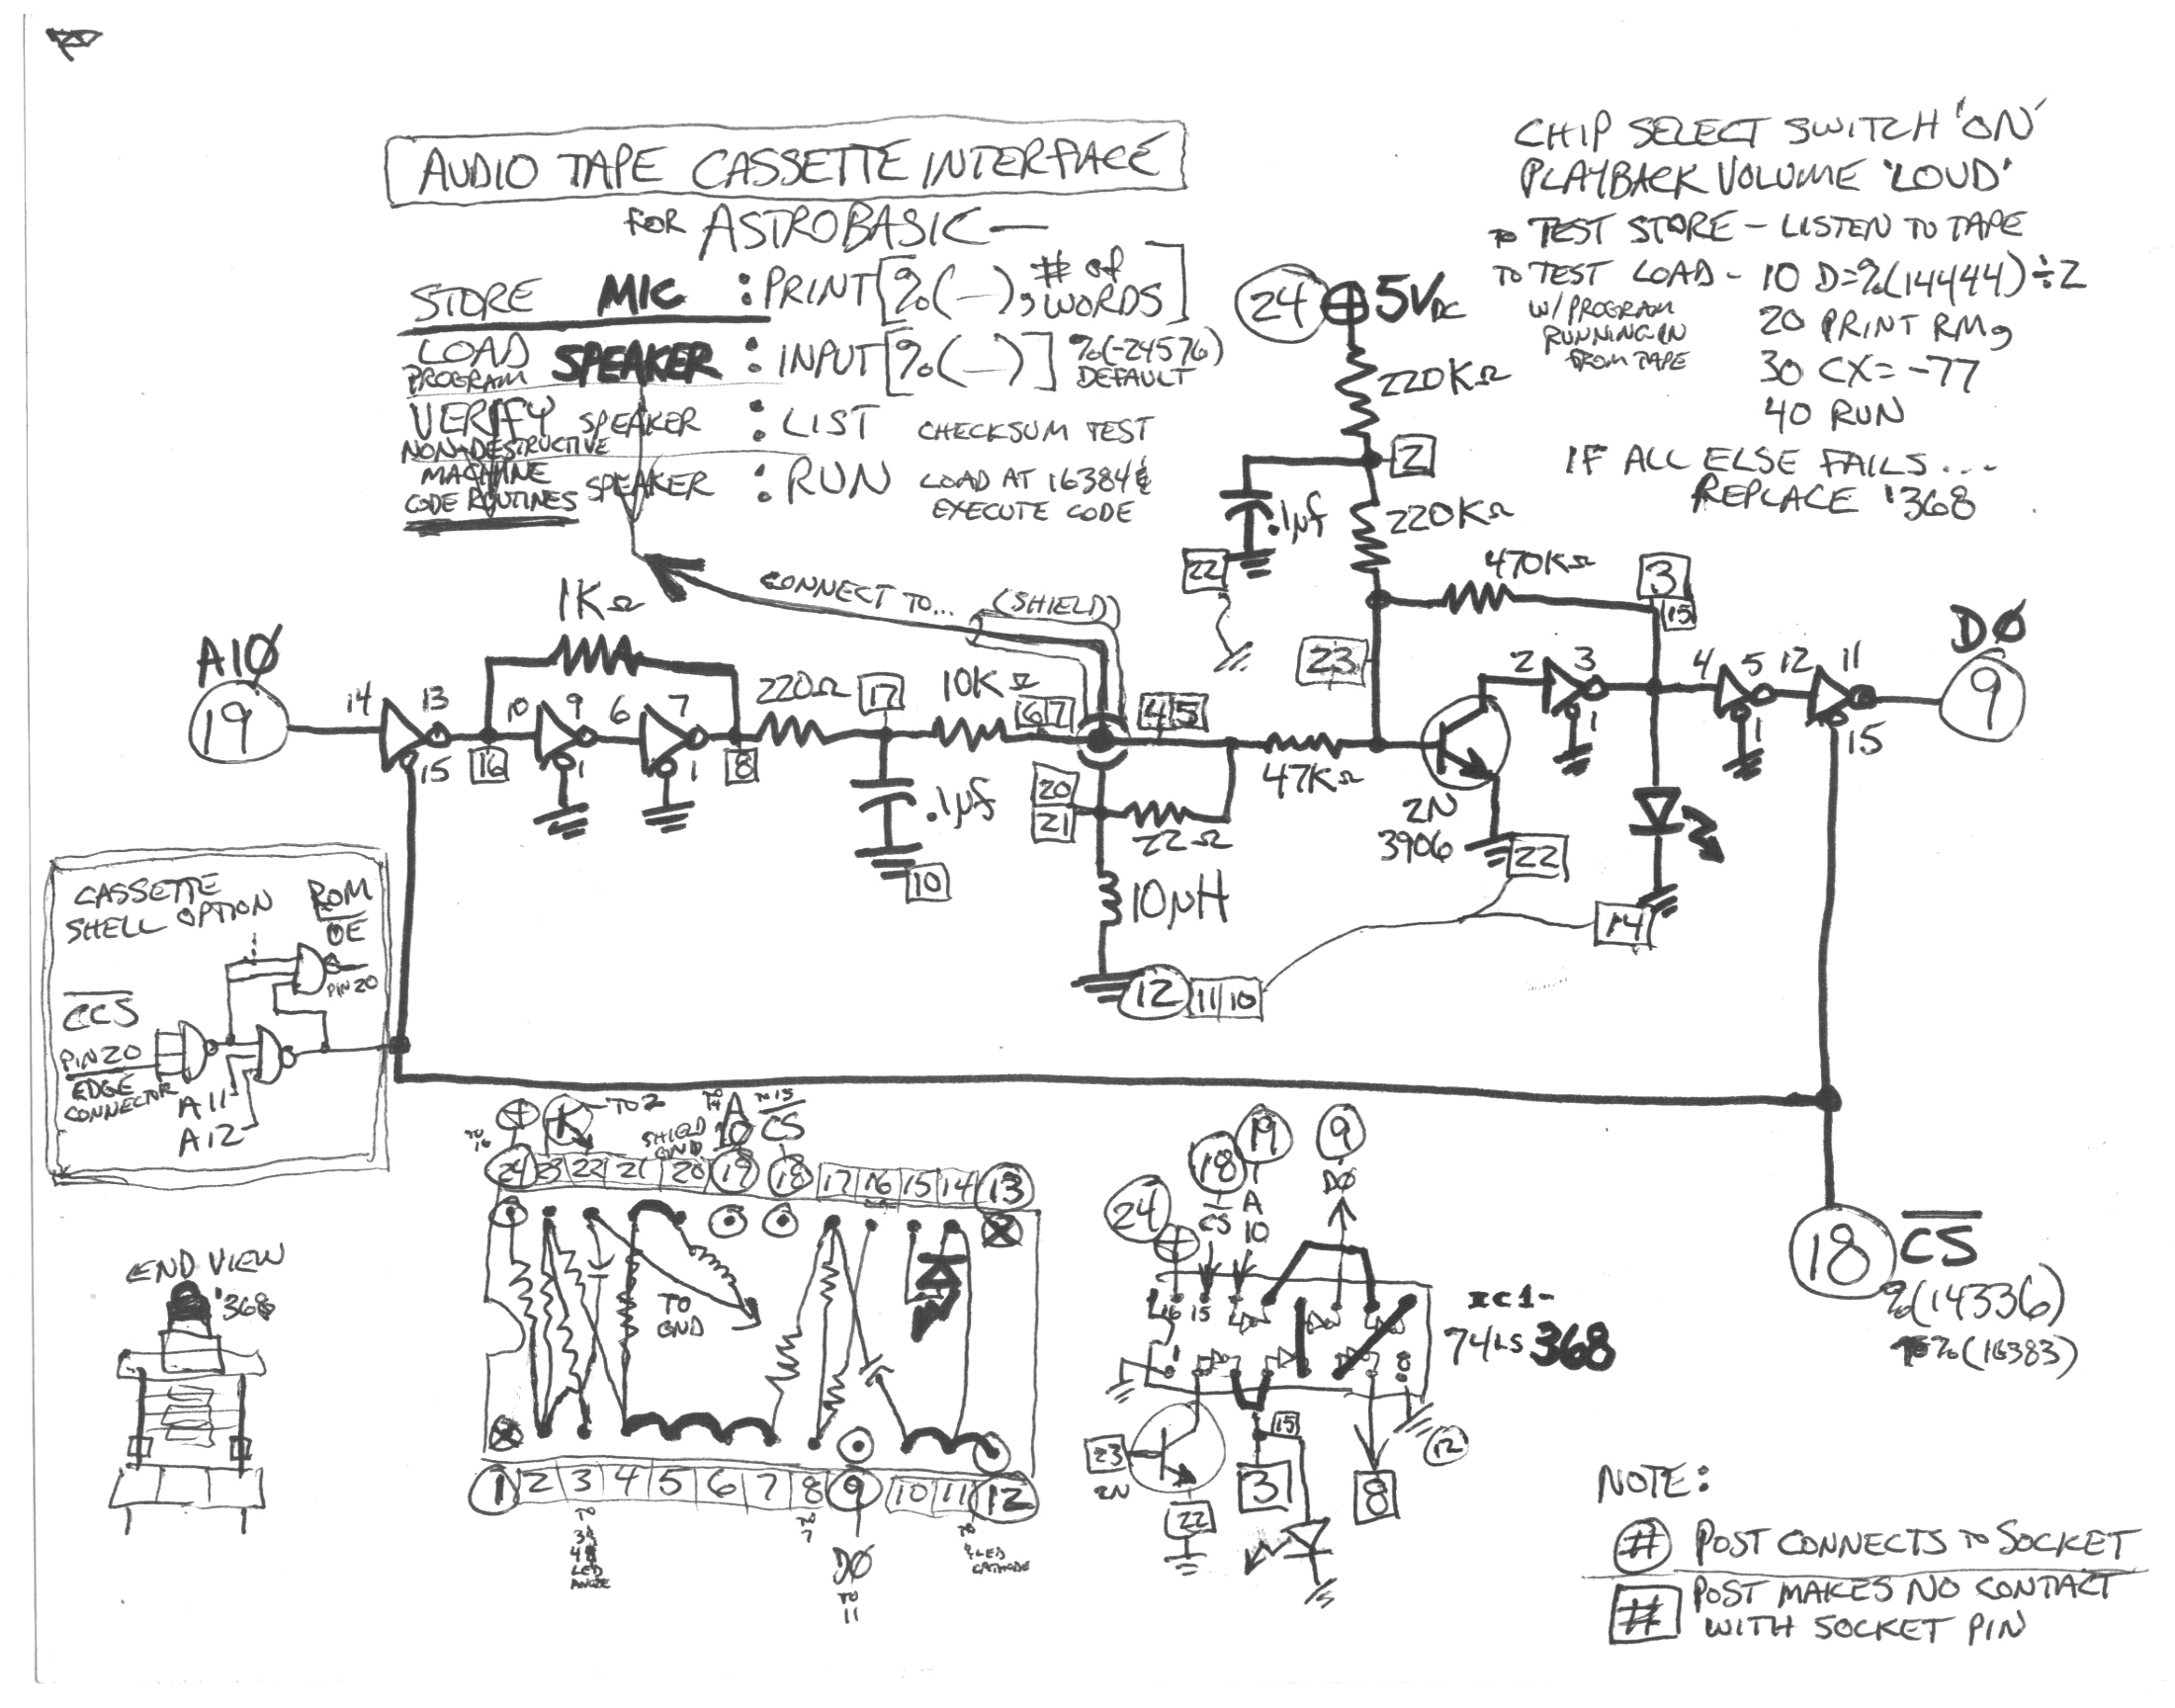 AUDIO TAPE CASSETTE INTERFACE
FOR ASTROBASIC —
STORE MIC : PRINT [%(—), # of WORDS]
LOAD PROGRAM SPEAKER : INPUT [%(—)] %(-24576) DEFAULT
VERIFY SPEAKER : LIST CHECKSUM TEST
NON-DESTRUCTIVE
MACHINE CODE ROUTINES SPEAKER : RUN LOAD AT 16384 & EXECUTE CODE
CHIP SELECT SWITCH 'ON'
PLAYBACK VOLUME 'LOUD'
TO TEST STORE - LISTEN TO TAPE
TO TEST LOAD - 10 D=%(14444)÷2
W/PROGRAM RUNNING IN FROM TAPE
20 PRINT RM,
30 CX=-77
40 RUN
IF ALL ELSE FAILS...
REPLACE '368
24 5VDC
220KΩ
2
.1µf
22
220KΩ
470KΩ
3
15
23
CONNECT TO... (SHIELD)
1KΩ
A1Ø
19
14 13
15
16
10 9
1
6 7
1
8
220Ω
17
10KΩ
6 7
4 5
.1µf
10
20
21
22Ω
47KΩ
10µH
12 11 10
2N
3906
22
2 3
1
14
4 5
1
12 11
15
DØ
9
CASSETTE
SHELL OPTION
ROM
OE
PIN 20
CCS
PIN 20
EDGE
CONNECTOR
A11
A12
18 CS
%(14336)
%(16383)
END VIEW
'368
TO 16
TO 2
SHIELD GND
TO 14
A
10
TO 15
CS
24 23 22 21 20 19 18 17 16 15 14 13
TO
GND
1 2 3 4 5 6 7 8 9 10 11 12
TO
3&
4&
LED
ANODE
TO
7
DØ
TO
11
TO
LED
CATHODE
24
18
CS
19
A
10
9
DØ
16 15
1
8
IC1-
74LS368
23
2N
22
15
3
8
12
NOTE:
# POST CONNECTS TO SOCKET
# POST MAKES NO CONTACT
WITH SOCKET PIN